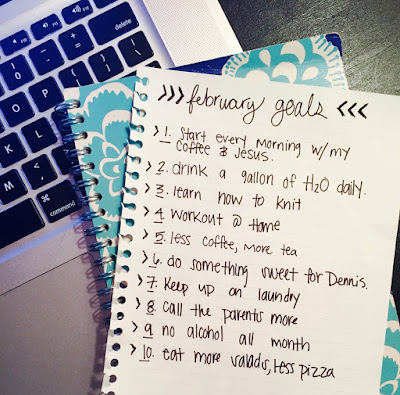 >>> february goals <<<
> 1. Start every morning w/ my
coffee & Jesus.
> 2. drink a gallon of H₂O daily.
> 3. learn how to knit
> 4. workout @ home
> 5. less coffee, more tea
> 6. do something sweet for Dennis.
> 7. Keep up on laundry
> 8. call the parents more
> 9. no alcohol all month
> 10. eat more salads, less pizza
delete
K
M
⌘
command